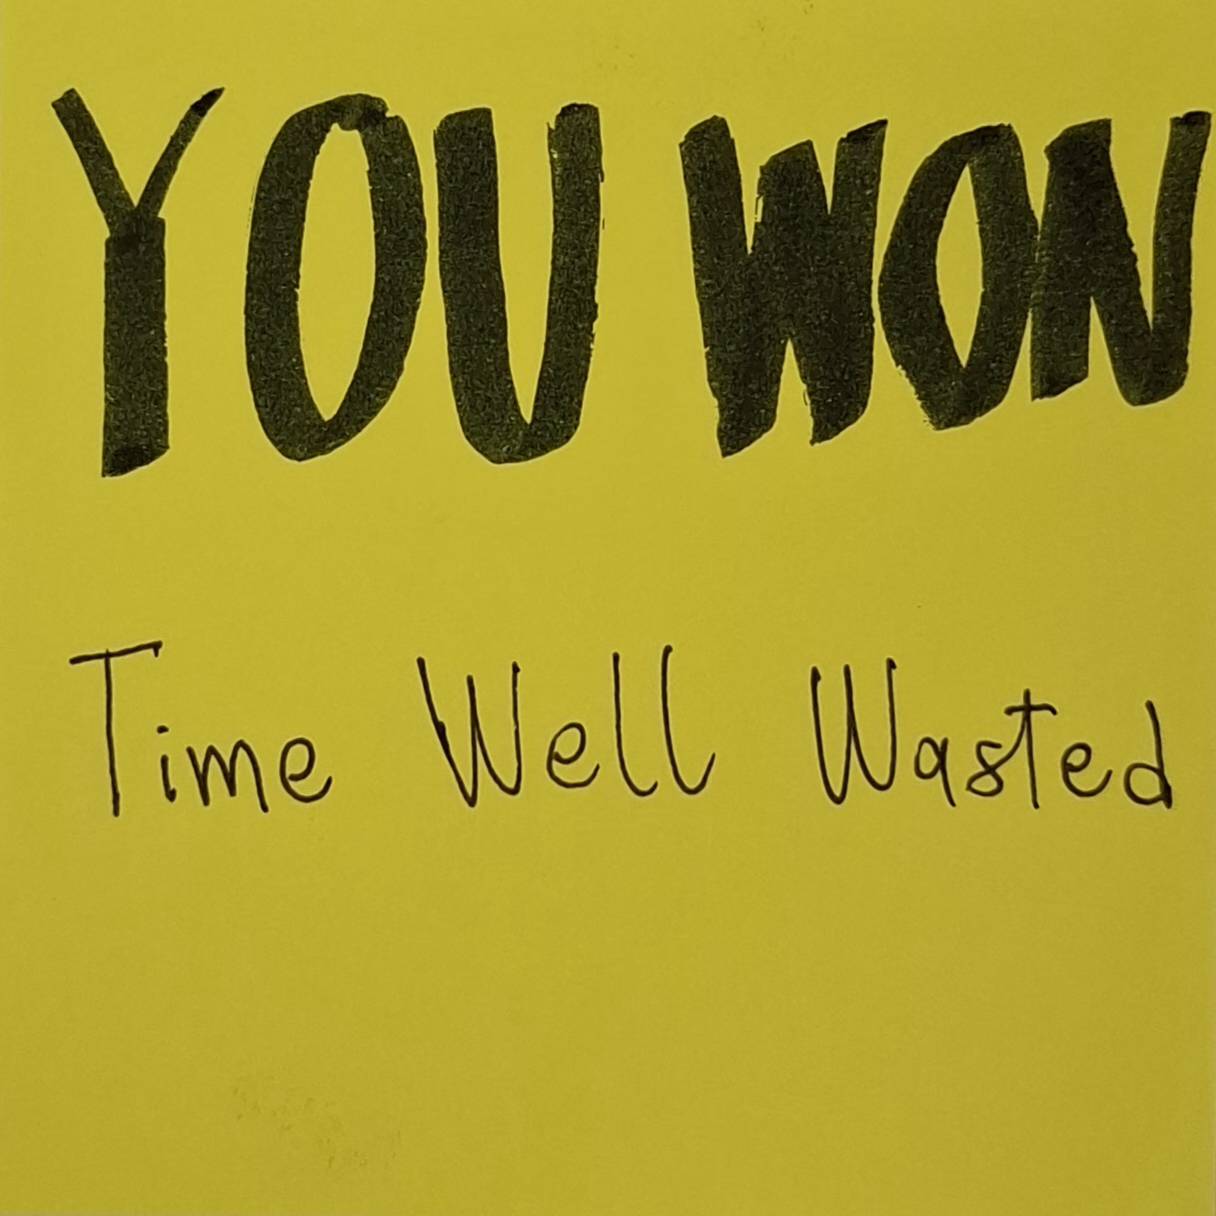 YOU WON
Time Well Wasted